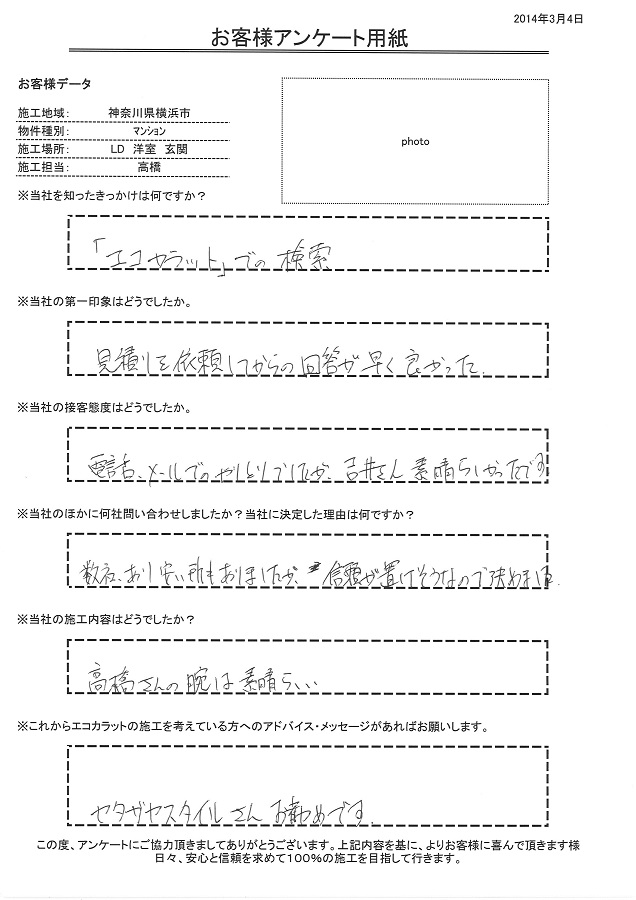 2014年3月4日
お客様アンケート用紙
お客様データ
施工地域： 神奈川県横浜市
物件種別： マンション
施工場所： LD 洋室 玄関
施工担当： 高橋
photo
※当社を知ったきっかけは何ですか？
「エコカラット」での検索
※当社の第一印象はどうでしたか。
見積りを依頼してからの回答が早く良かった.
※当社の接客態度はどうでしたか。
電話、メールでのやりとりでしたが、吉井さん素晴らしかったです
※当社のほかに何社問い合わせしましたか？当社に決定した理由は何ですか？
数社、あり安い所もありましたが、信頼が置けそうなので決めました.
※当社の施工内容はどうでしたか？
高橋さんの腕は素晴らしい
※これからエコカラットの施工を考えている方へのアドバイス・メッセージがあればお願いします。
セタガヤスタイルさんお勧めです.
この度、アンケートにご協力頂きましてありがとうございます。上記内容を基に、よりお客様に喜んで頂きます様
日々、安心と信頼を求めて100％の施工を目指して行きます。